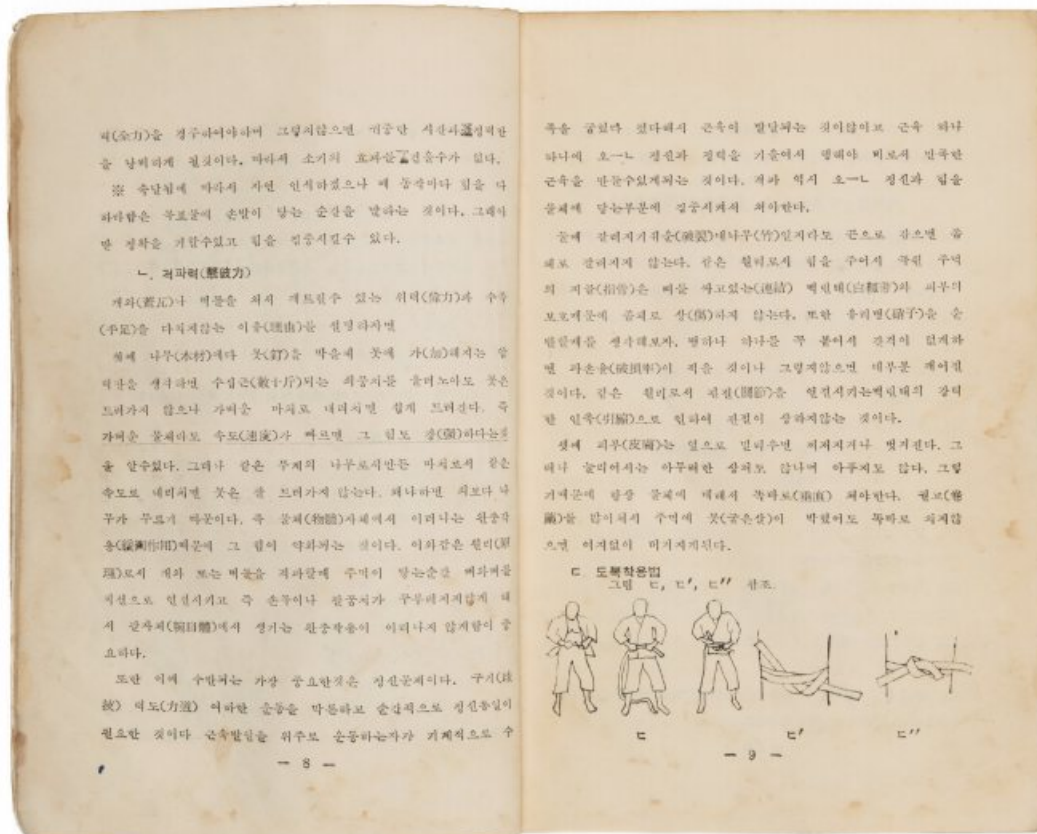 력(全力)을 경주하여야하며 그렇지않으면 귀중한 시간과 정력만
을 낭비하게 될것이다. 따라서 소기의 효과를 걷을수가 없다.
※ 숙달됨에 따라서 자연 인식하겠으나 매 동작마다 힘을 다
하라함은 목표물에 손발이 닿는 순간을 말하는 것이다. 그래야
만 정확을 기할수있고 힘을 집중시킬수 있다.
ㄴ. 격파력(擊破力)
개와(蓋瓦)나 벽돌을 쳐서 깨트릴수 있는 위력(偉力)과 수족
(手足)을 다치지않는 이유(理由)를 설명하자면
첫째 나무(木材)에다 못(釘)을 박을때 못에 가(加)해지는
생각하면 수십근(數十斤)되는 쇠뭉치를 올려노아도 못은
드러가지 않으나 가벼운 마치로 내려치면 쉽게 드러간다. 즉
가벼운 물체라도 속도(速度)가 빠르면 그 힘도 강(强)하다는것
을 알수있다. 그러나 같은 무게의 나무로서만든 마치로서 같은
속도로 내리치면 못은 잘 드러가지 않는다. 왜냐하면 쇠보다 나
무가 무르기 때문이다. 즉 물체(物體)자체에서 이러나는 완충작
용(緩衝作用)때문에 그 힘이 약화되는 것이다. 이와같은 원리(原
理)로서 개와 또는 벽돌을 격파할때 주먹이 닿는순간 뼈와뼈를
직선으로 연결시키고 즉 손목이나 팔꿈치가 구부러지지않게 해
서 팔자체(腕自體)에서 생기는 완충작용이 이러나지 않게함이 중
요하다.
또한 이에 수반되는 가장 중요한것은 정신문제이다. 구기(球
技) 력도(力道) 여하한 운동을 막론하고 순간적으로 정신통일이
필요한 것이다 근육발달을 위주로 운동하는자가 기계적으로 수
— 8 —
족을 굽혔다 폈다해서 근육이 발달되는 것이않이고 근육 하나
하나에 오ㅡㄴ 정신과 정력을 기울여서 행해야 비로서 만족한
근육을 만들수있게되는 것이다. 격파 역시 오ㅡㄴ 정신과 힘을
물체에 닿는부분에 집중시켜서 쳐야한다.
둘째 갈러지기쉬운(破裂)대나무(竹)일지라도 끈으로 감으면
갈러지지 않는다. 같은 원리로서 힘을 주어서 쥔 주먹
의 지골(指骨)은 뼈를 싸고있는(連結) 피부의
보호때문에 상(傷)하지 않는다. 또한 유리병(硝子)을 운
반할때를 생각해보자. 병하나 하나를 꼭 붙여서 간격이 없게하
면 파손율(破損率)이 적을 것이나 그렇지않으면 대부분 깨어질
것이다. 같은 원리로서 관절(關節)을 연결시키는 강력
한 인축(引縮)으로 인하여 관절이 상하지않는 것이다.
셋째 피부(皮膚)는 옆으로 밀리우면 찌저지거나 벗겨진다. 그
러나 눌리어서는 아무러한 상처도 않나며 아푸지도 않다. 그렇
기때문에 항상 물체에 대해서 똑바로(垂直) 쳐야한다. 권고
를 많이쳐서 주먹에 못(굳은살)이 박혔어도 똑바로 치지않
으면 여지없이 미거지게된다.
ㄷ 도복착용법
그림 ㄷ, ㄷ′, ㄷ″ 참조.
ㄷ ㄷ′ ㄷ″
— 9 —